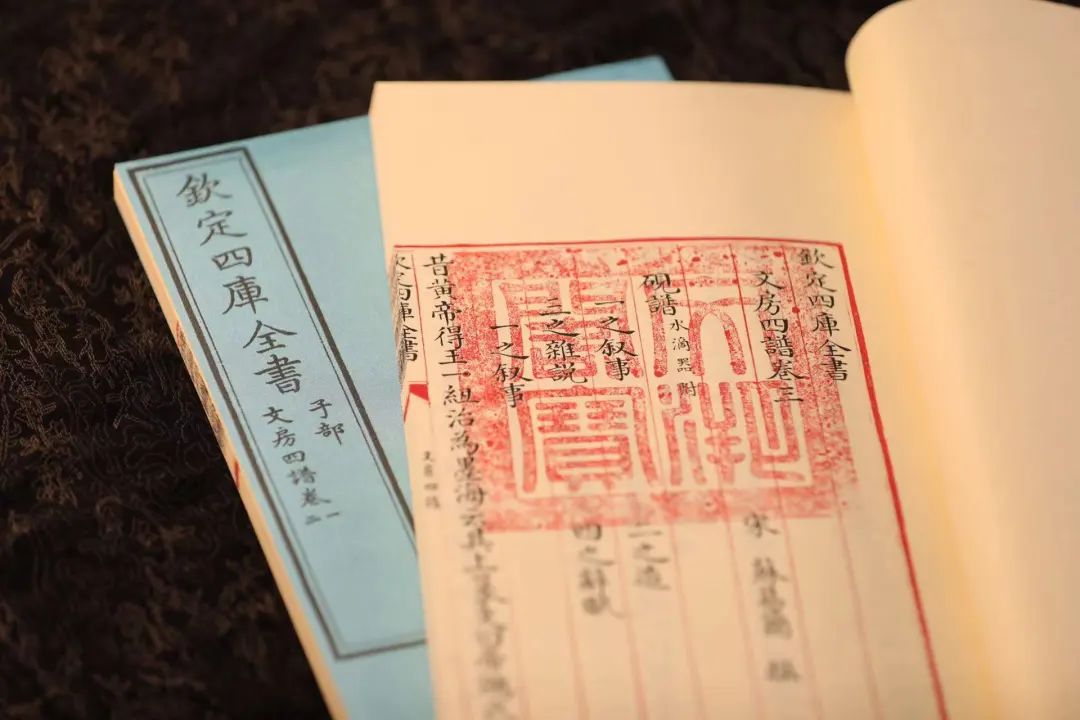 欽定四庫全書
子部
文房四譜卷一二
欽定四庫全書
文房四譜卷三
宋 蘇易簡 撰
硯譜 水滴器附
一之叙事 二之造
三之雜說 四之辭賦
一之叙事
昔黄帝得玉一紐治為墨海云其上篆文曰帝鴻氏
欽定四庫全書
文房四譜
文淵閣寶